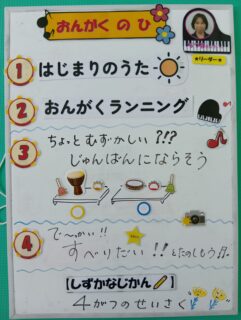 おんがく の ひ
★リーダー★
1 はじまりのうた
2 おんがくランニング
3 ちょっと むずかしい ?!?
じゅんばんにならそう
4 で〜っかい!!
すべりだい!!とたのしもう♫
【しずかなじかん】
4がつのせいさく